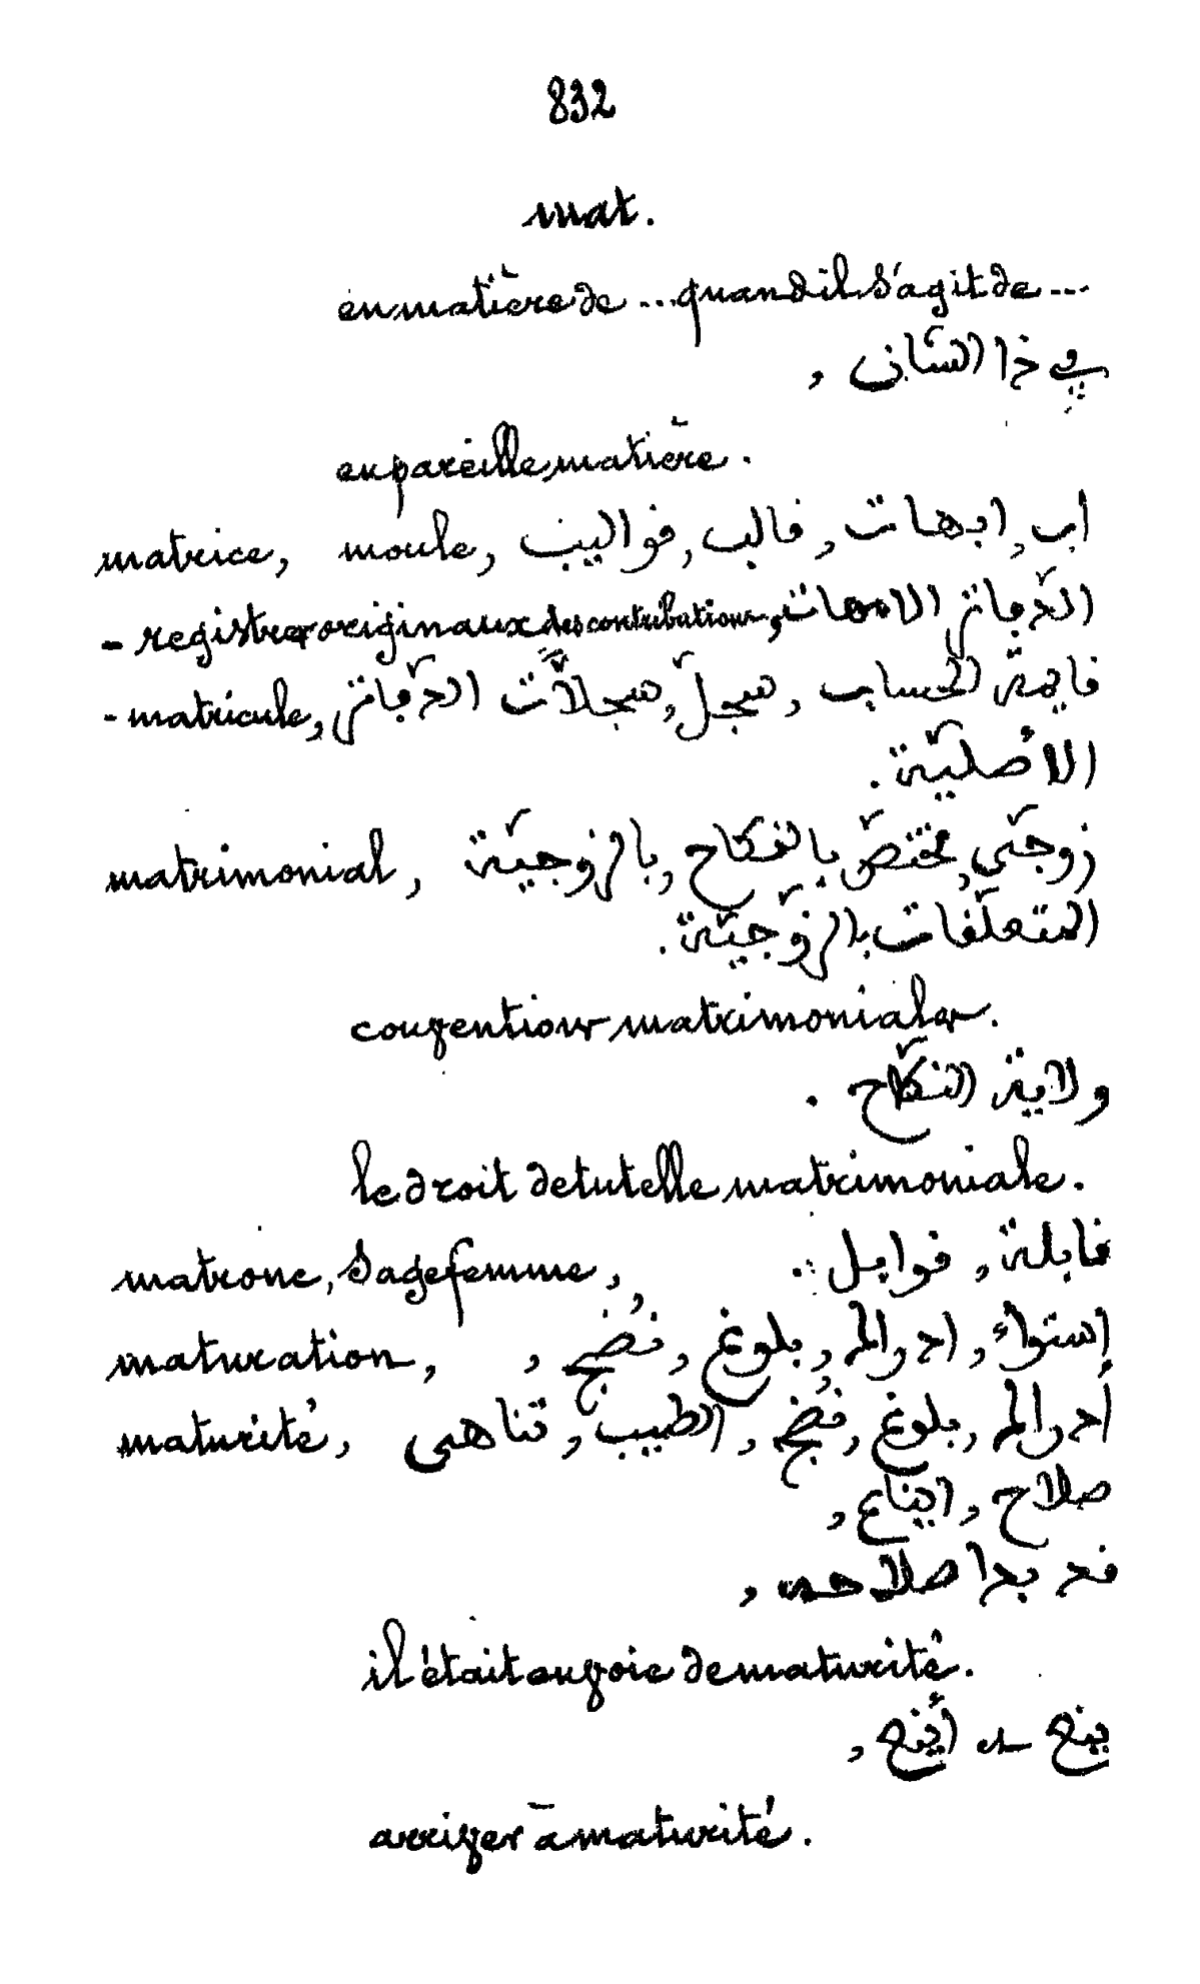 832
mat.
en matière de ... quand il s'agit de ...
في ذا الشان ,
en pareille matière.
matrice, moule, اب, ابهات, قالب, قواليب
- registres originaux des contributions, الدّفاتر الامهات
- matricule, قايمة الحساب, سجلّ, سجلاّت الدّفاتر
الأصليّة.
matrimonial, زوجيّ, مختصّ بالنّكاح, بالزوجيّة
المتعلّقات بالزّوجيّة.
conventions matrimoniales.
ولاية النكّاح.
le droit de tutelle matrimoniale.
matrone, sage femme, قابلة, قوابل.
maturation, إستواء, ادراك, بلوغ, نُضج,
maturité, أدراك, بلوغ, نُضج, الطيب, تناهى
صلاح, ايناع,
قد بدا صلاحه,
il était en voie de maturité.
ينع ـه أينع,
arriver à maturité.